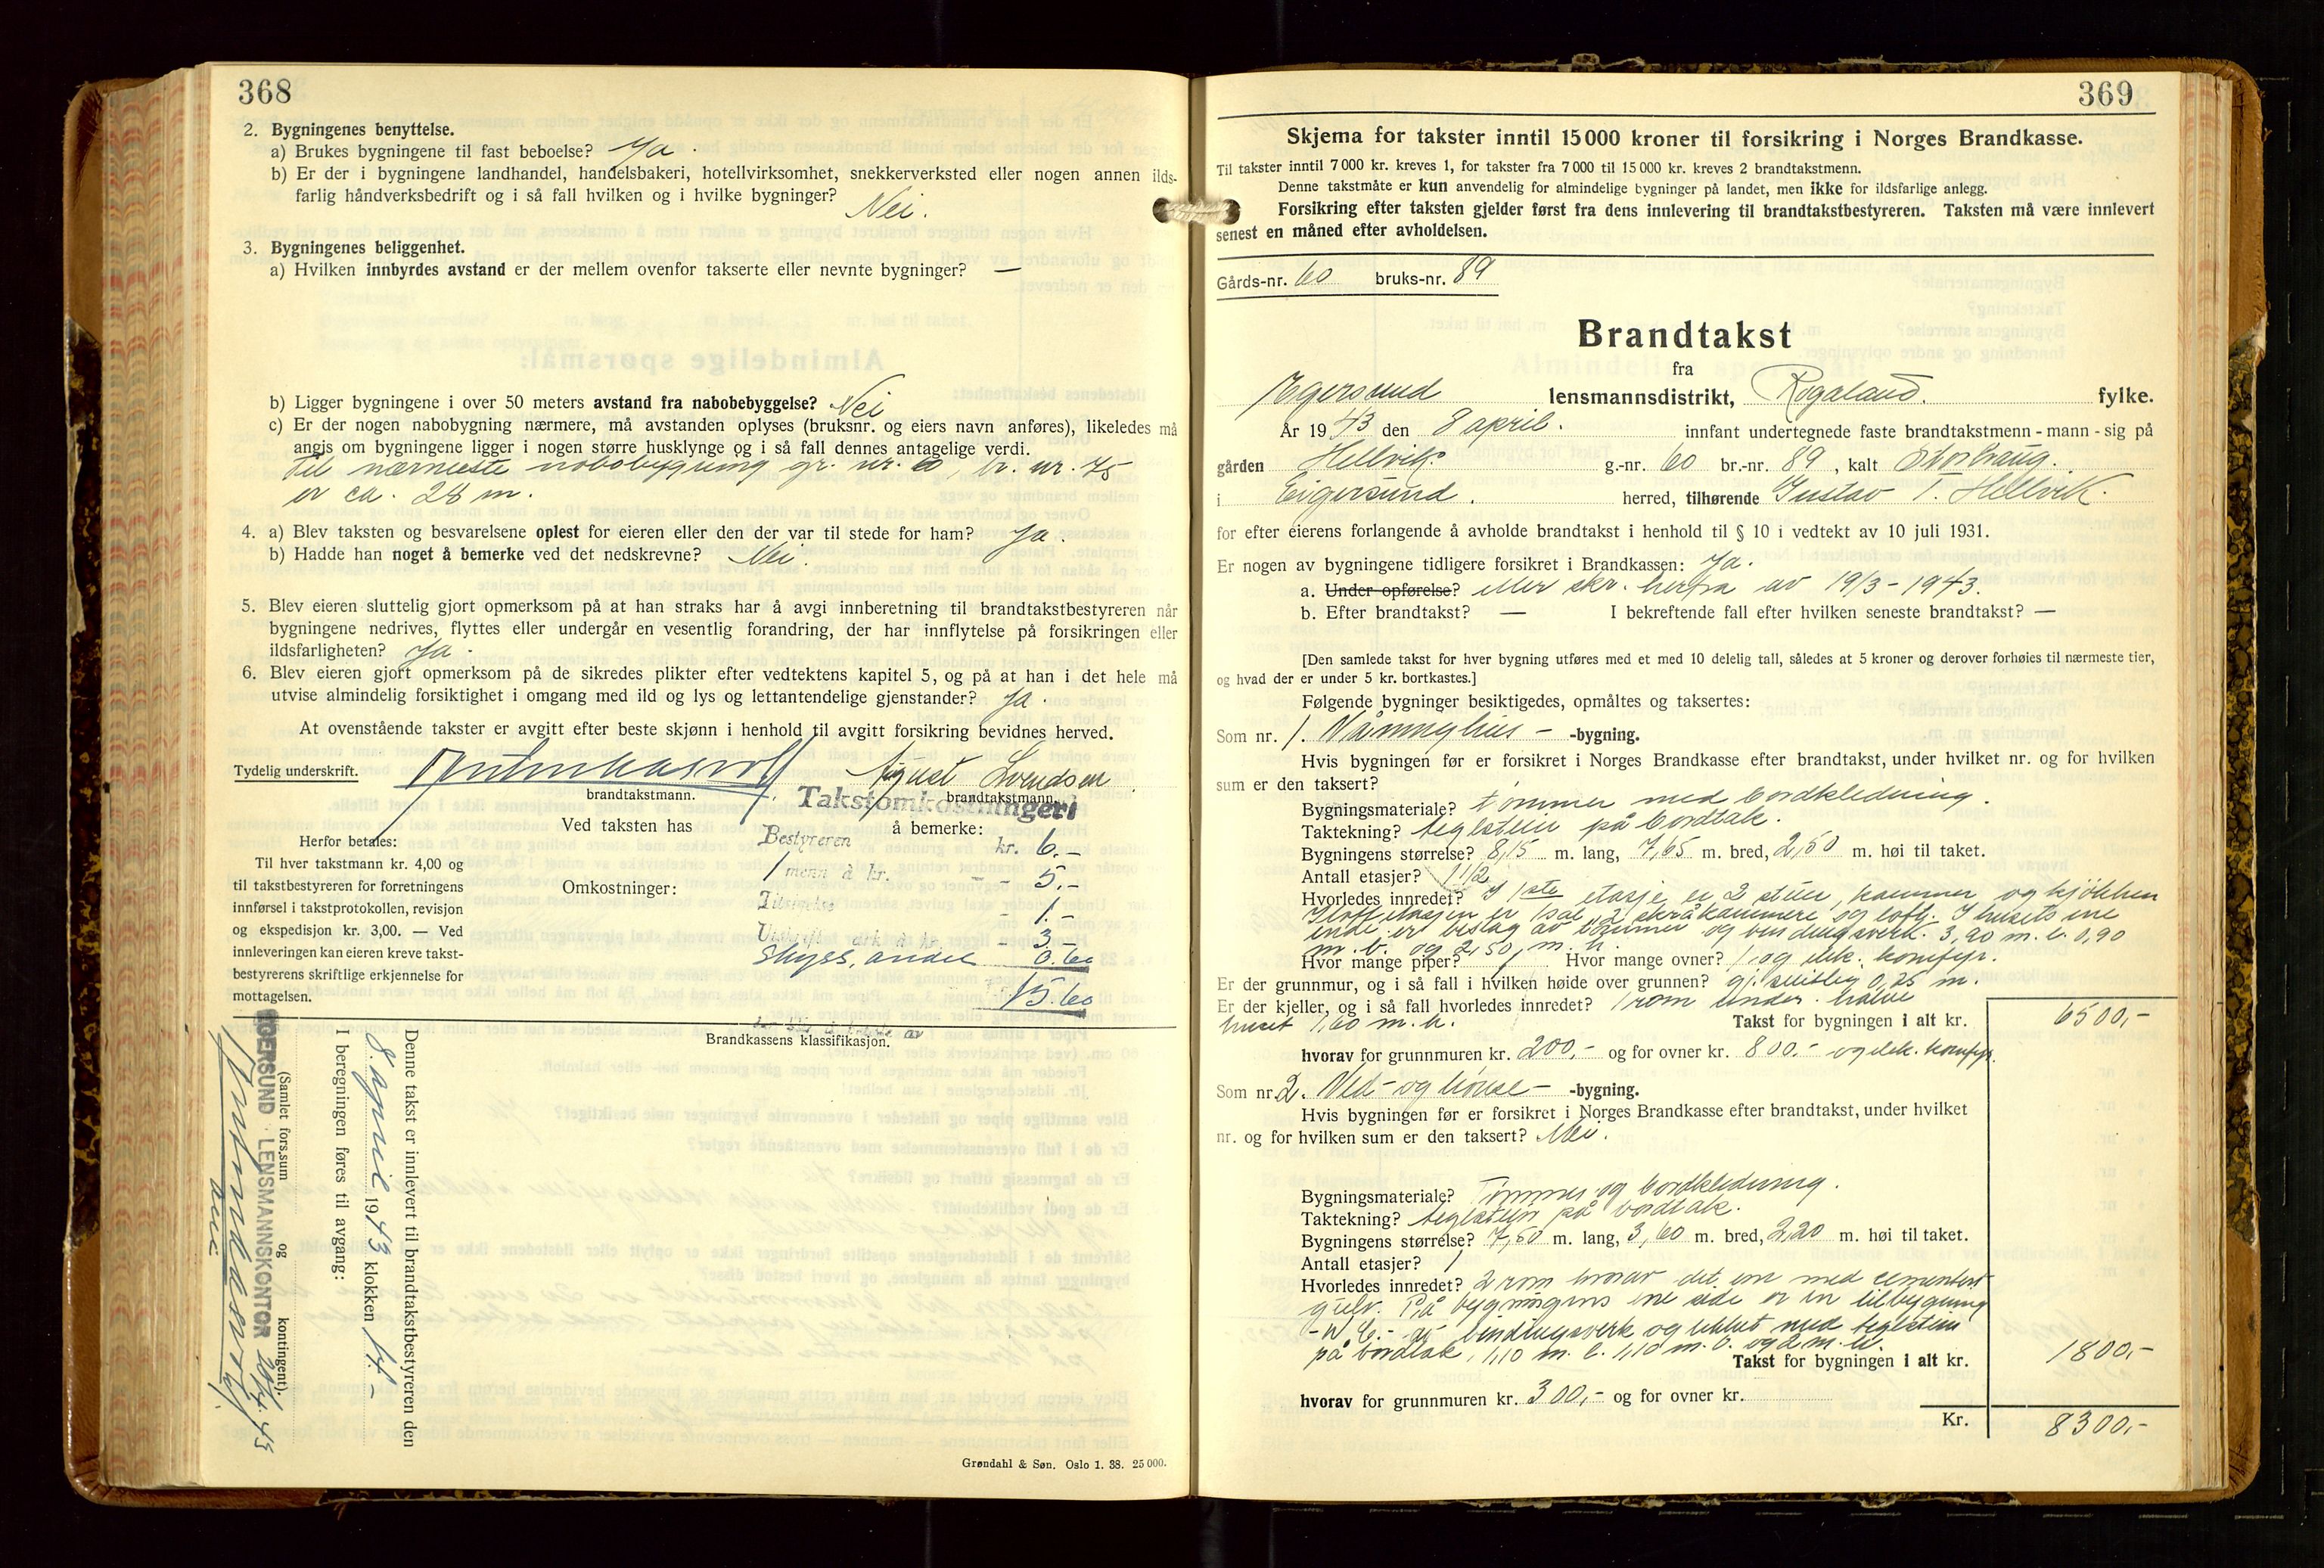 368
2. Bygningenes benyttelse.
a) Brukes bygningene til fast beboelse? Ja.
b) Er der i bygningene landhandel, handelsbakeri, hotellvirksomhet, snekkerverksted eller nogen annen ilds-
farlig håndverksbedrift og i så fall hvilken og i hvilke bygninger? Nei.
3. Bygningenes beliggenhet.
a) Hvilken innbyrdes avstand er der mellem ovenfor takserte eller nevnte bygninger? —
b) Ligger bygningene i over 50 meters avstand fra nabobebyggelse? Nei
c) Er der nogen nabobygning nærmere, må avstanden oplyses (bruksnr. og eiers navn anføres), likeledes må
angis om bygningene ligger i nogen større husklynge og i så fall dennes antagelige verdi.
Til nærmeste nabobygning gr. nr. 60, br. nr. 75
er ca. 28 m.
4. a) Blev taksten og besvarelsene oplest for eieren eller den der var til stede for ham? Ja.
b) Hadde han noget å bemerke ved det nedskrevne? Nei.
5. Blev eieren sluttelig gjort opmerksom på at han straks har å avgi innberetning til brandtakstbestyreren når
bygningene nedrives, flyttes eller undergår en vesentlig forandring, der har innflytelse på forsikringen eller
ildsfarligheten? Ja.
6. Blev eieren gjort opmerksom på de sikredes plikter efter vedtektens kapitel 5, og på at han i det hele må
utvise almindelig forsiktighet i omgang med ild og lys og lettantendelige gjenstander? Ja.
At ovenstående takster er avgitt efter beste skjønn i henhold til avgitt forsikring bevidnes herved.
Tydelig underskrift. August Svendsen.
brandtakstmann. brandtakstmann.
Takstomkostninger:
Ved taksten has å bemerke:
Herfor betales:
Til hver takstmann kr. 4,00 og
til takstbestyreren for forretningens
innførsel i takstprotokollen, revisjon
og ekspedisjon kr. 3,00. — Ved
innleveringen kan eieren kreve takst-
bestyrerens skriftlige erkjennelse for
mottagelsen.
Omkostninger:
Bestyreren kr. 6.-
1 menn à kr. - 5.-
- 1.-
Utskrift ark à kr. - 3.-
Skyss, andel 0.60
15.60
Brandkassens klassifikasjon.
Denne takst er innlevert til brandtakstbestyreren den
8. april 1943 klokken 14 -
I beregningen føres til avgang:
(Samlet fors.sum og kontingent).
EGERSUND LENSMANNSKONTOR 20/4. 43
Grøndahl & Søn. Oslo 1. 38. 25 000.
369
Skjema for takster inntil 15 000 kroner til forsikring i Norges Brandkasse.
Til takster inntil 7 000 kr. kreves 1, for takster fra 7 000 til 15 000 kr. kreves 2 brandtakstmenn.
Denne takstmåte er kun anvendelig for almindelige bygninger på landet, men ikke for ildsfarlige anlegg.
Forsikring efter taksten gjelder først fra dens innlevering til brandtakstbestyreren. Taksten må være innlevert
senest en måned efter avholdelsen.
Gårds-nr. 60 bruks-nr. 89
Brandtakst
fra
Egersund lensmannsdistrikt, Rogaland. fylke.
År 1943 den 8 april. innfant undertegnede faste brandtakstmenn - mann - sig på
gården Hellvik g.-nr. 60 br.-nr. 89, kalt
i Eigersund. herred, tilhørende Gustav T. Hellvik.
for efter eierens forlangende å avholde brandtakst i henhold til § 10 i vedtekt av 10 juli 1931.
Er nogen av bygningene tidligere forsikret i Brandkassen: Ja.
a. Under opførelse? etter skr. herfra av 19/3 - 1943.
b. Efter brandtakst? — I bekreftende fall efter hvilken seneste brandtakst? —
[Den samlede takst for hver bygning utføres med et med 10 delelig tall, således at 5 kroner og derover forhøies til nærmeste tier,
og hvad der er under 5 kr. bortkastes.]
Følgende bygninger besiktigedes, opmåltes og taksertes:
Som nr. 1. Våningshus - -bygning.
Hvis bygningen før er forsikret i Norges Brandkasse efter brandtakst, under hvilket nr. og for hvilken
sum er den taksert?
Bygningsmateriale? tømmer med bordkledning.
Taktekning? teglstein på bordtak.
Bygningens størrelse? 8,15 m. lang, 7,65 m. bred, 2,50 m. høi til taket.
Antall etasjer? 1 1/2
Hvorledes innredet? I 1ste etasje er 2 stuer, kammer og kjøkken
I loftetasjen er 1 sal, 2 skråkammere og loft. I husets ene
ende er beslag av tømmer og bindingsverk. 3,90 m. l. 0,90
m. b. og 2,50 m. h.
Hvor mange piper? 1 Hvor mange ovner? 1 og elek. komfyr.
Er der grunnmur, og i så fall i hvilken høide over grunnen? gj.snittlig 0,25 m.
Er der kjeller, og i så fall hvorledes innredet? 1 rom under halve
huset 1,60 m. h. Takst for bygningen i alt kr. 6500,-
hvorav for grunnmuren kr. 200,- og for ovner kr. 800.- og elek. komfyr.
Som nr. 2. Ved- og hønse- -bygning.
Hvis bygningen før er forsikret i Norges Brandkasse efter brandtakst, under hvilket
nr. og for hvilken sum er den taksert? Nei.
Bygningsmateriale? Tømmer og bordkledning.
Taktekning? teglstein på bordtak.
Bygningens størrelse? 7,50 m. lang, 3,60 m. bred, 2,20 m. høi til taket.
Antall etasjer? 1
Hvorledes innredet? 2 rom hvorav det ene med cementert
gulv. På bygningens ene side er en tilbygning
- W.C. - av bindingsverk og tekket med teglstein
på bordtak, 1,10 m. l. 1,10 m. b. og 2 m. h.
Takst for bygningen i alt kr. 1800,-
hvorav for grunnmuren kr. 300,- og for ovner kr.
Kr. 8300,-